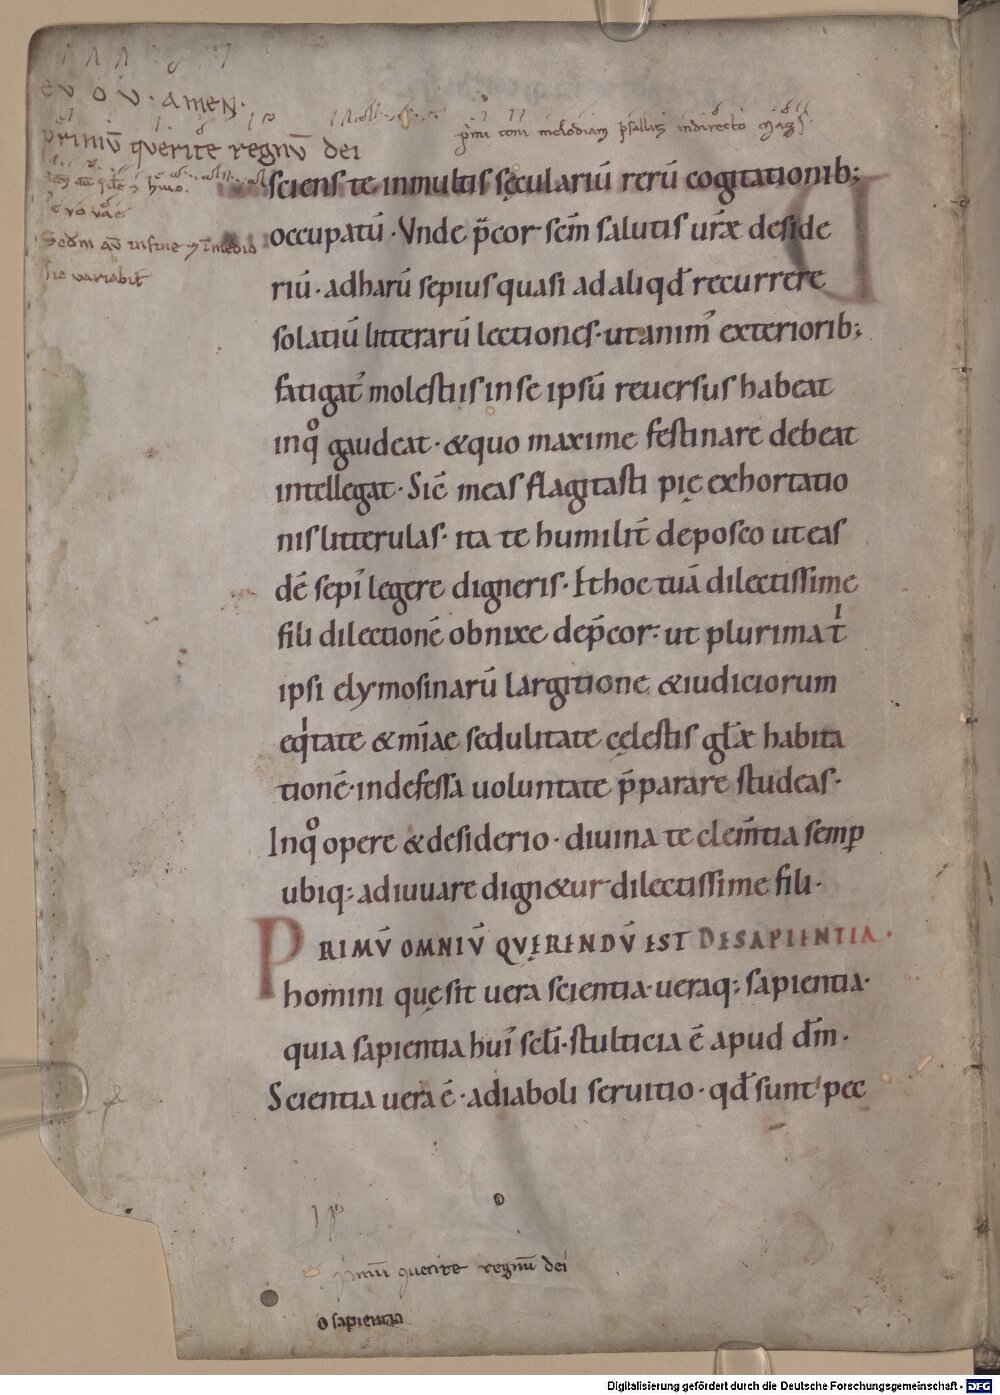 ev o v · amen·
primū querite regnū dei
p̄mi toni melodiam psallas indirecto
Sedm aū infine ⁊ ī medio
sic variabit̄
sciens te inmultis sęculariū rerū cogitationib;
occupatū · Vnde p̄cor sēm salutis uræ deside
riū · adharū sepius quasi ad aliqđ recurrere
solatiū litterarū lectiones · ut anim᾽ exteriorib;
fatigat᾽ molestiis in se ipsū reuersus habeat
inqͦ gaudeat · &quo maxime festinare debeat
intellegat · Sic̄ meas flagitasti pię exhortatio
nis litterulas · ita te humilit̄ deposco ut eas
dē sepi᾽ legere digneris · Et hoc tuā dilectissime
fili dilectionē obnixe dep̄cor · ut plurima t̍
ipsi elymosinarū largitione &iudiciorum
eq̍tate &mīae sedulitate cęlestis gl̄æ habita
tionē · indefessa uoluntate p̄parare studeas ·
Inqͦ opere &desiderio · diuina te clem̄tia semꝑ
ubiq; adiuuare dign&ur dilectissime fili ·
PRIMV̄ OMNIV̄ QVĘRENDV̄ EST DE SAPIENTIA ·
homini quę sit uera scientia · ueraq; sapientia ·
quia sapientia hui᾽ scl̄i · stulticia ē apud dm̄ ·
Scientia uera ē · adiaboli seruitio · qđ sunt pec
primū querite regnū dei
o sapientia
Digitalisierung gefördert durch die Deutsche Forschungsgemeinschaft - DFG